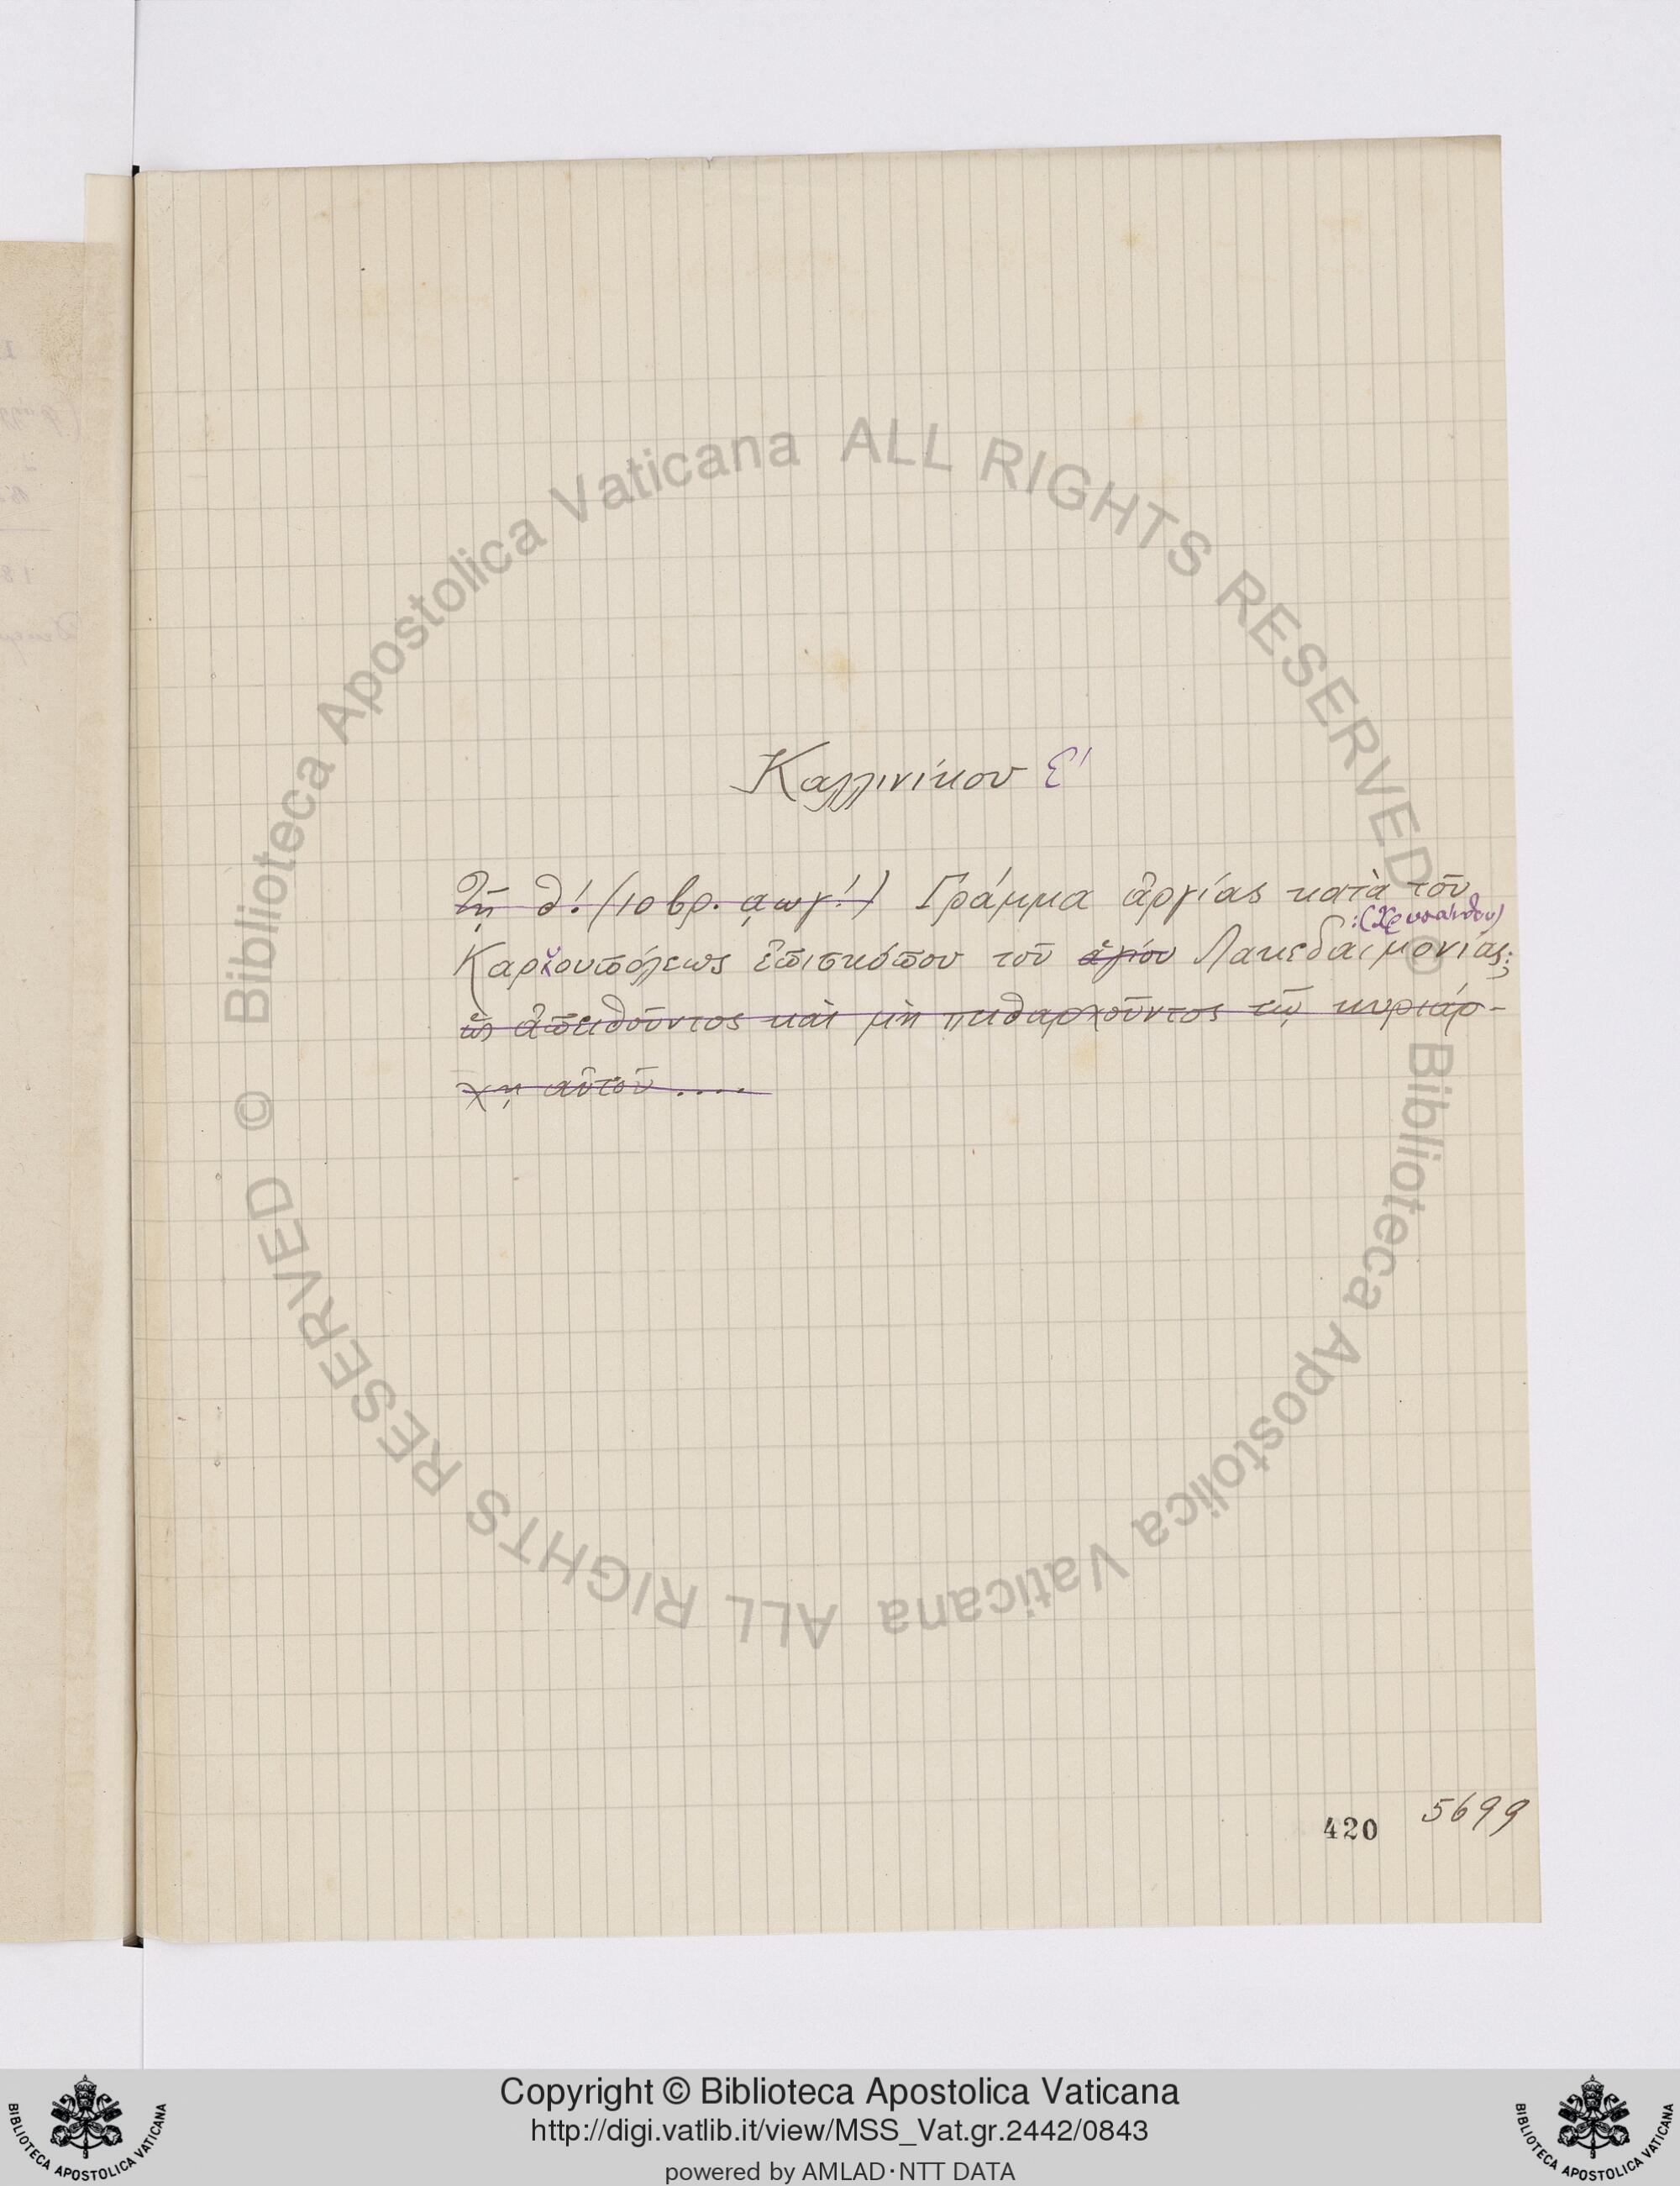 Καλλινίκου Ε'
Τῇ θ'. (10βρ. αωγ'.) Γράμμα ἀργίας κατὰ τοῦ
:(Χρυσάνθου)
Καρχουπόλεως ἐπισκόπου τοῦ ἁγίου Λακεδαιμονίας;
ὡς ἀπειθοῦντος καὶ μὴ πειθαρχοῦντος τῷ κυριάρ-
χῃ αὐτοῦ ....
420 5699
© Biblioteca Apostolica Vaticana ALL RIGHTS RESERVED
© Biblioteca Apostolica Vaticana ALL RIGHTS RESERVED
Copyright © Biblioteca Apostolica Vaticana
http://digi.vatlib.it/view/MSS_Vat.gr.2442/0843
powered by AMLAD·NTT DATA
BIBLIOTECA APOSTOLICA VATICANA
BIBLIOTECA APOSTOLICA VATICANA